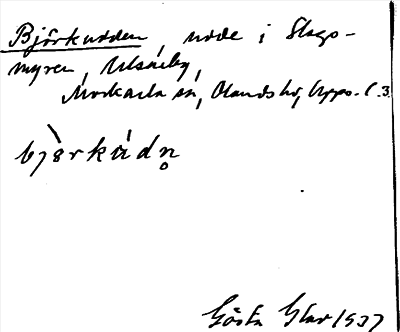 Björkudden, udde i Slags-
myren, Ulsäng,
Morkarla sn, Olands hd, Upps. l. 3.
bjö̀rkùdn̥
Gösta Glas 1937